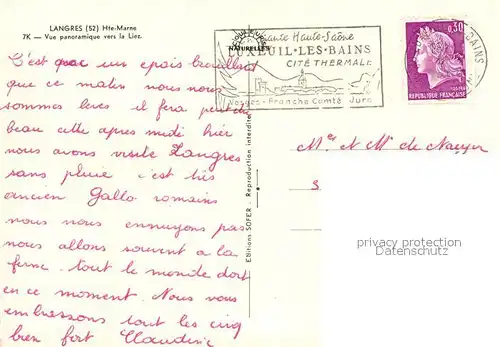 LANGRES (52) Hte-Marne
7K — Vue panoramique vers la Liez.
C'est par un épais brouillard
que ce matin nous nous
sommes levés il fera peut être
beau cette après midi hier
nous avons visité Langres
sans pluie c'est très
ancien Gallo romains
nous nous ennuyons pas
nous allons souvent a la
ferme tout le monde dort
en ce moment. Nous vous
embrassons tout les cinq
bien fort Claudine
COULEURS
NATURELLES
Haute Haute-Saône
LUXEUIL-LES-BAINS
CITÉ THERMALE
Vosges-Franche Comté Jura
0,30
REPUBLIQUE FRANÇAISE
BAINS
Editions SOFER - Reproduction interdite
Me et Mr de
s
privacy protection
Datenschutz